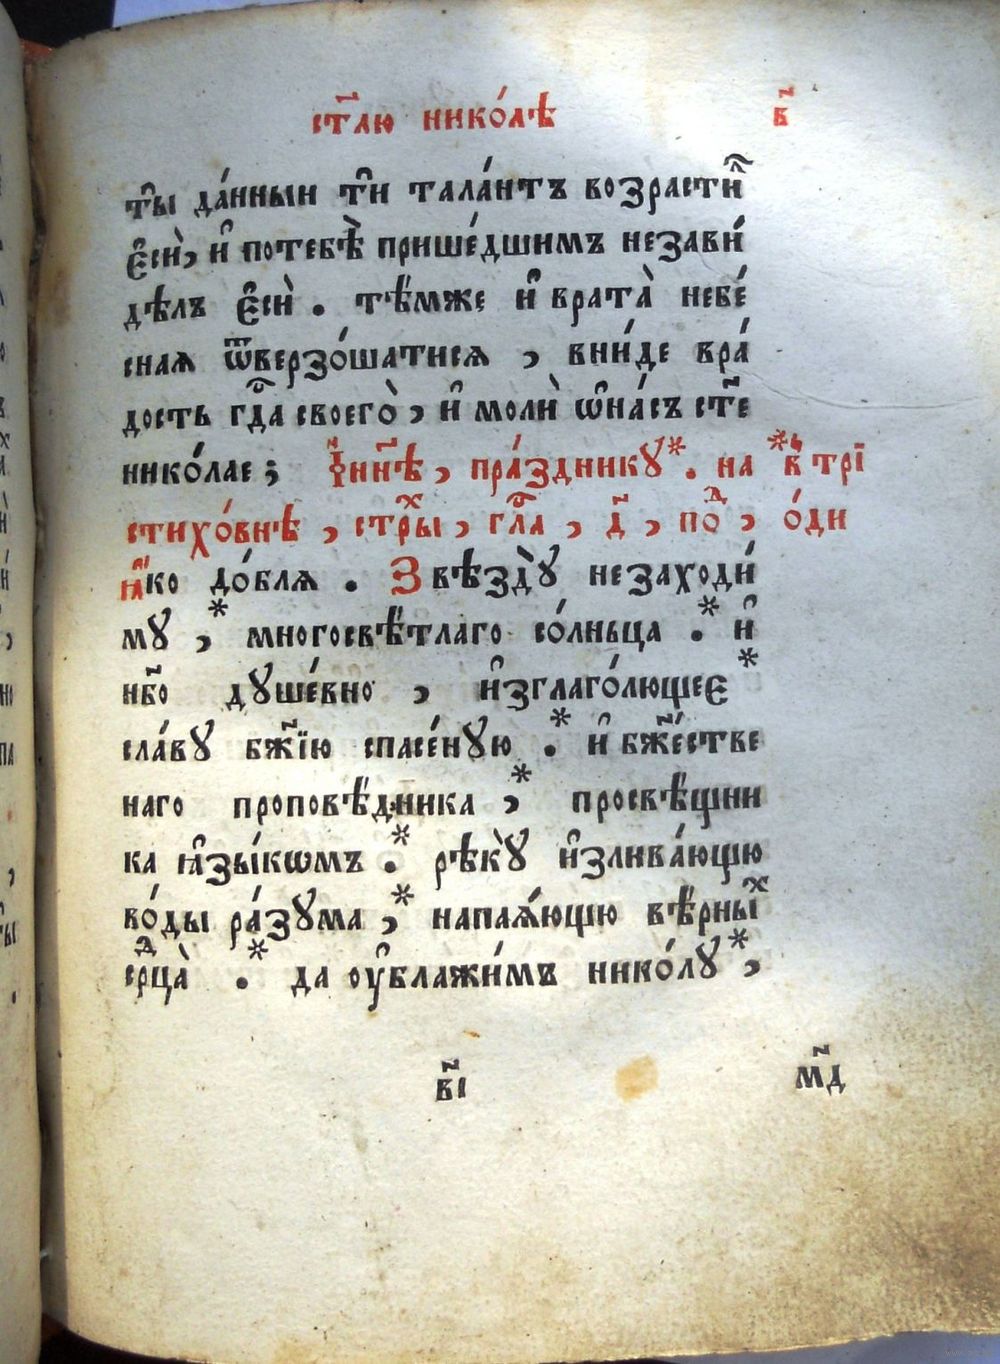 ст҃лю нико́лѣ в҃
ты̑ да́нныи тѝ тала́нтъ возрасти́л
є҆сѝ, и҆ потебѣ̀ прише́дшимъ незави́
дѣлъ є҆сѝ . тѣ́мже и҆ врата̀ небе́
сная ѿверзо́шатися , вни́де вра́
дость гдⷭ҇а своего̀ , и҆ молѝ ѡ҆на́съ ст҃е
нико́лае ; и҆ нн҃ѣ , пра́зднику * . на * в҃ трі
стихо́внѣ , стрⷯы , глⷭ҇а , д҃ , поⷣ , о́ди
ꙗ҆́ко до́бля . Звѣздꙋ̀ незаходи́
мꙋ ,* многосвѣ́тлаго со́лньца .* и҆
нб҃о дꙋше́вно , и҆зглаго́лющее *
сла́вꙋ бж҃їю спасе́нꙋю .* и҆ бж҃е́стве
наго проповѣ́дника ,* просвѣ́щни
ка ꙗ҆зы́кѡмъ .* рѣкꙋ̀ и҆злива́ющю
во́ды ра́зꙋма ,* напаꙗ́ющю вѣ́рныⷯ
срⷣца̀ .* да оу҆блажи́мъ нико́лꙋ ,*
в҃і м҃д